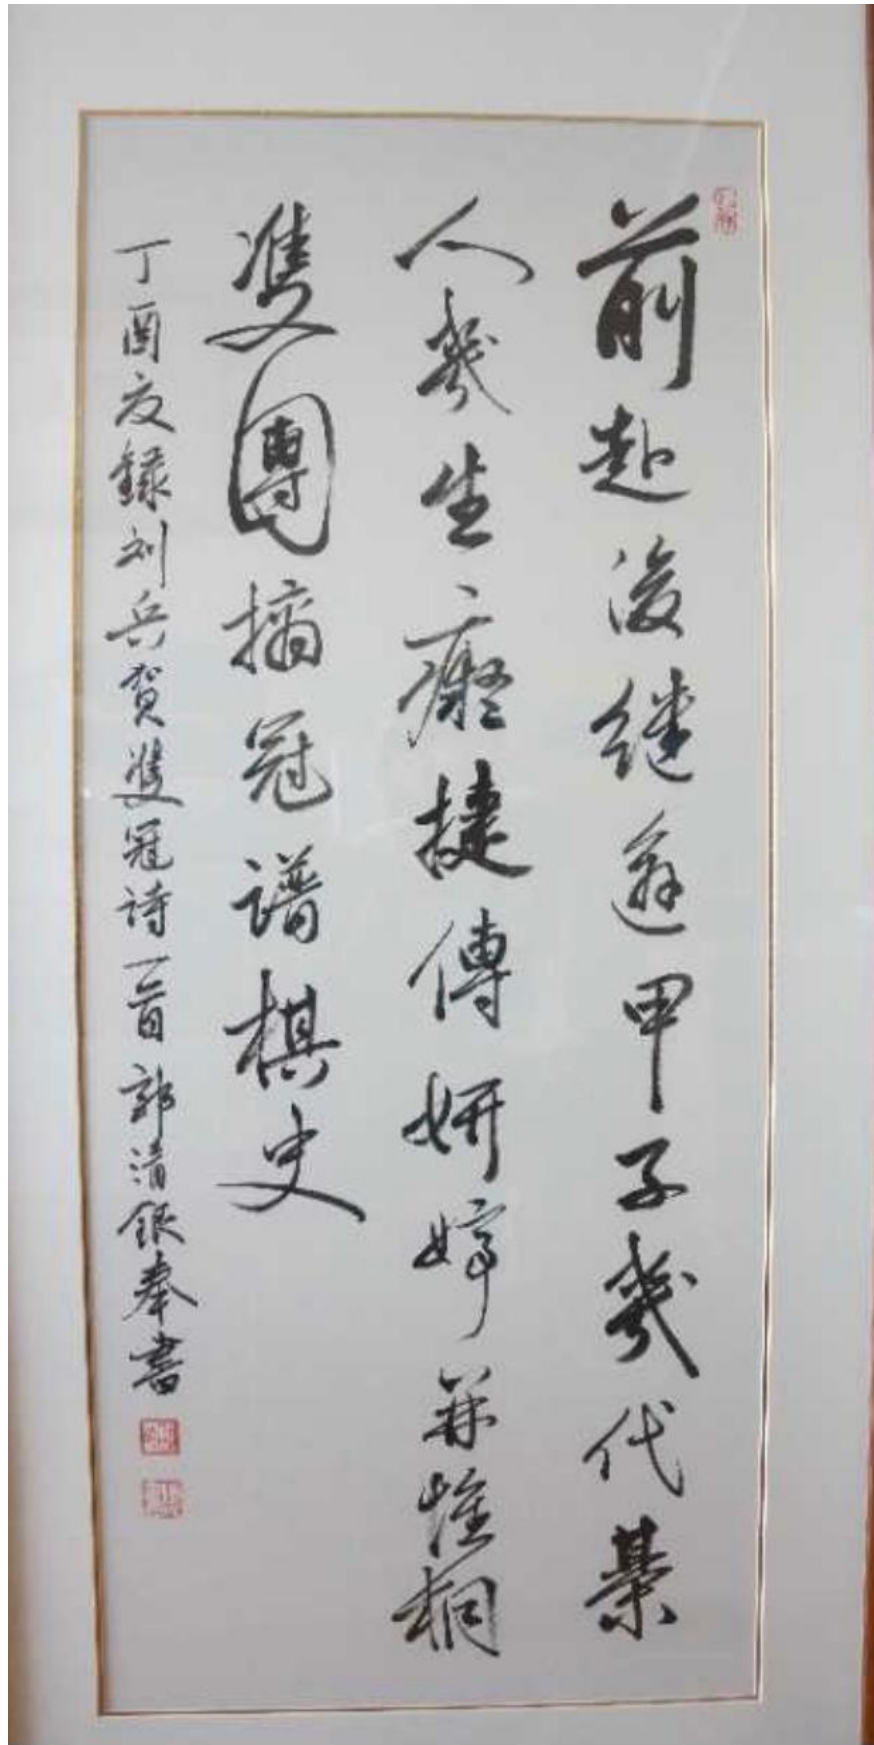 前赴後继逾甲子幾代棊
人幾生癡捷傳妍婷并惟桐
雙團摘冠谱棋史
丁酉夏録刘兵贺雙冠诗一首 郭清銀奉書